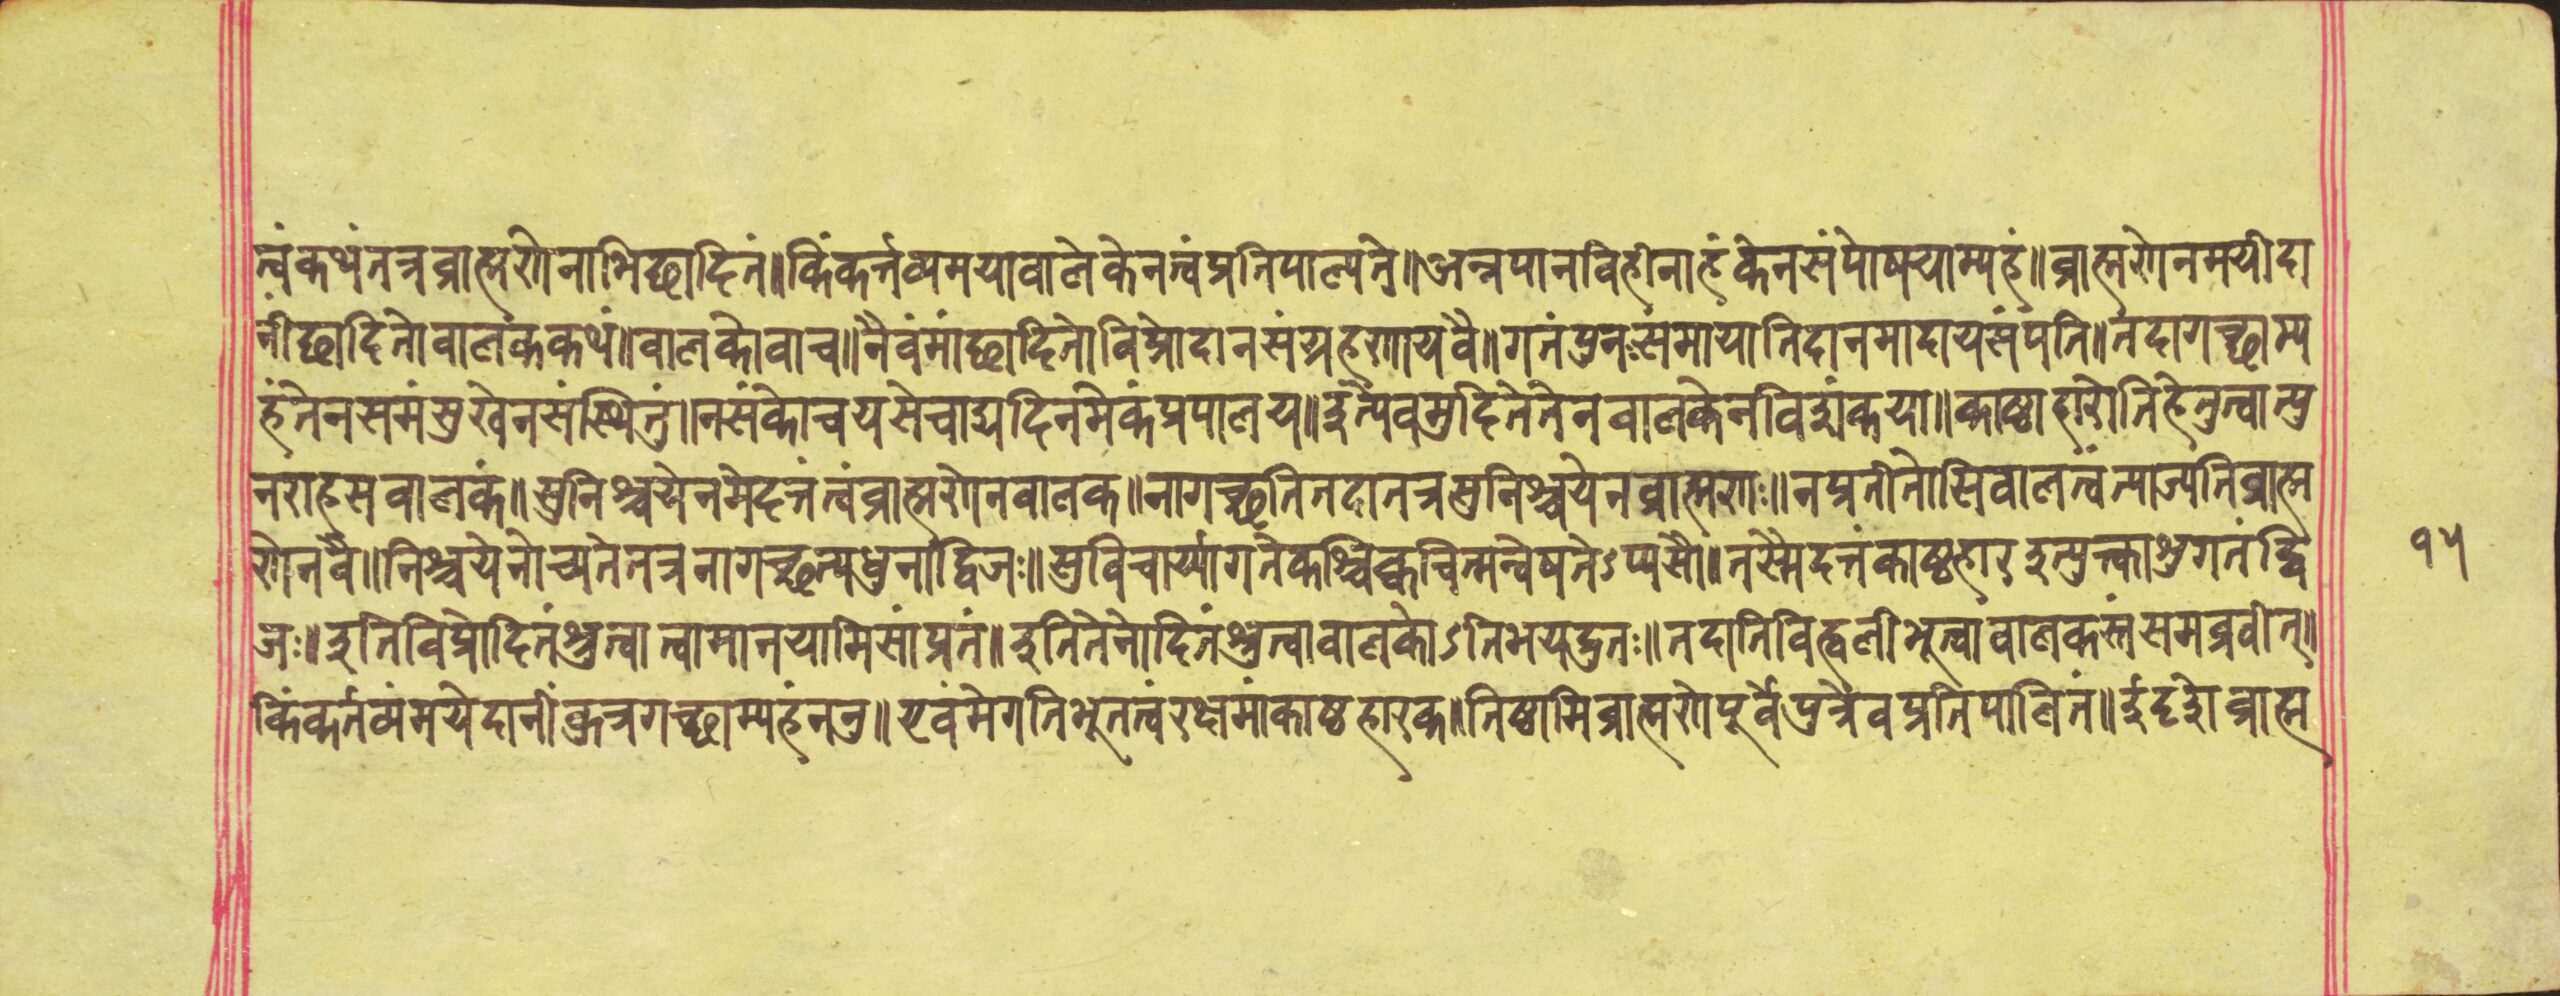 त्वंकथंतत्रब्राह्मणेनाभिछादितं॥किंकर्त्तव्यमयावालेकेनत्वंप्रतिपाल्यते॥अन्नपानविहीनाहंकेनसंपोषयाम्यहं॥ब्राह्मणेनमयीदा
नींछादितोवालकंकथं॥वालकोवाच॥नैवंमांछादितोविप्रोदानसंग्रहणायवै॥गतंपुनःसमायातिदानमादायसंपति॥तदागच्छाम्य
हंतेनसमंसुखेनसंस्थितुं॥नसंकोचयसेचाद्यदिनमेकंप्रपालय॥इत्येवमुदितेतेनवालकेनविशंकया॥काष्ठाहारोतिहेतुत्वात्पु
नराहसवालकं॥सुनिश्चयेनमेदत्तंत्वंब्राह्मणेनवालक॥नागच्छतितदातत्रसुनिश्चयेनब्राह्मणः॥नप्रतीतोसिवालत्वंत्याज्यतिब्राह्म
णेनवै॥निश्चयेनोच्यतेतत्रनागच्छत्यधुनाद्विजः॥सुविचार्य्यागतेकश्चित्क्वचिन्मन्वेषतेऽप्यसौ॥तस्मैदत्तंकाष्ठहारइत्युक्त्वाश्रुगतंद्वि
जः॥इतिविप्रोदितंश्रुत्वात्वामानयामिसांप्रतं॥इतितेनोदितंश्रुत्वावालकोऽतिभयद्रुतः॥तदातिविह्वलीभूत्वावालकस्तंसमब्रवीत्॥
किंकर्तव्यंमयेदानींकुत्रगच्छाम्यहंननु॥एवंमेगतिभूतत्वंरक्षमांकाष्ठहारक॥तिष्ठामिब्राह्मणेपूर्वेपुत्रेवप्रतिपालितं॥ईदृशोब्राह्म
१५